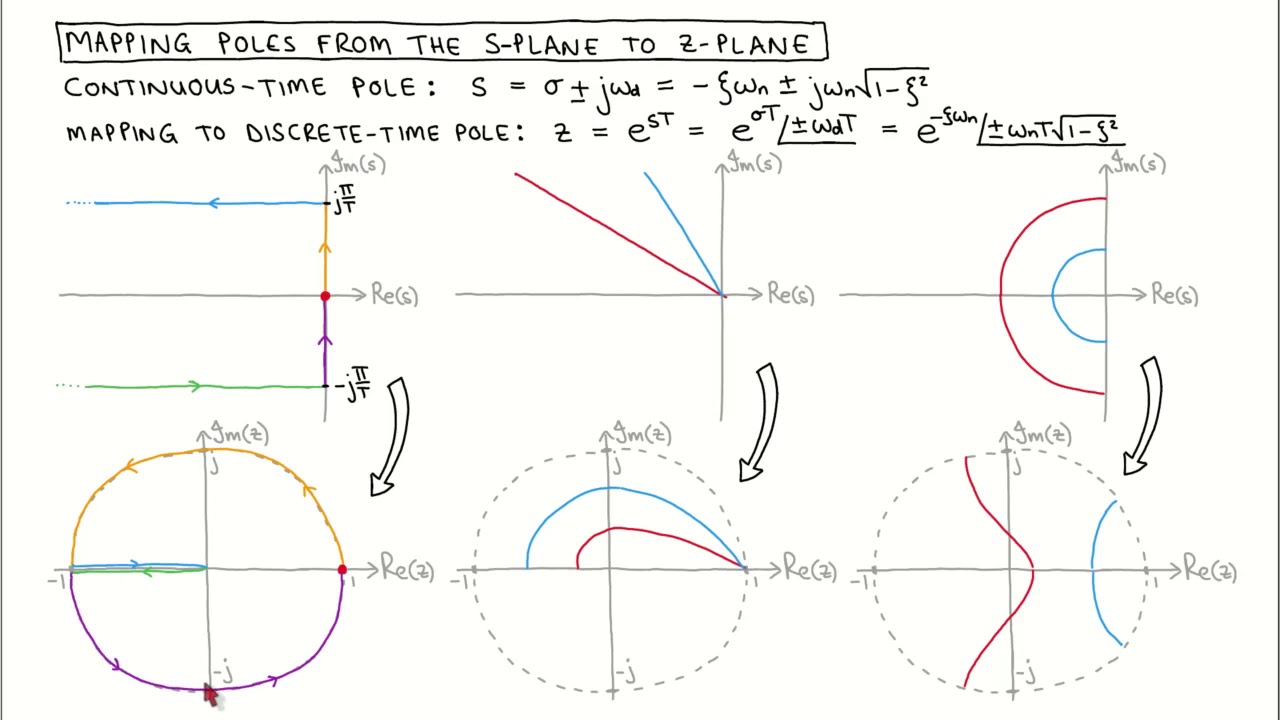 MAPPING POLES FROM THE S-PLANE TO Z-PLANE
CONTINUOUS-TIME POLE: S = σ ± jωd = -ξωn ± jωn√1-ξ²
MAPPING TO DISCRETE-TIME POLE: z = e^sT = e^σT /±ωdT = e^-ξωn /±ωnT√1-ξ²
Im(s) Im(s) Im(s)
jπ/T
Re(s) Re(s) Re(s)
-jπ/T
Im(z) Im(z) Im(z)
j j j
-1 Re(z) -1 1 Re(z) -1 1 Re(z)
-j -j -j